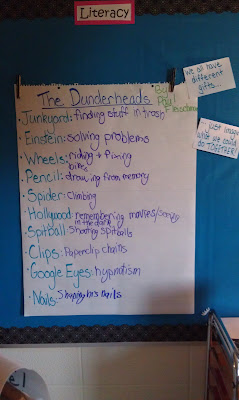 Literacy
The Dunderheads
By Paul Fleischman
Junkyard: finding stuff in trash
Einstein: solving problems
Wheels: riding + fixing
bikes
Pencil: drawing from memory
Spider: Climbing
Hollywood: remembering movies/songs
in the dark
Spitball: Shooting spitballs
Clips: Paperclip chains
Google Eyes: hypnotism
Nails:
We all have
different
gifts...
... just imagine
what we could
do TOGETHER!